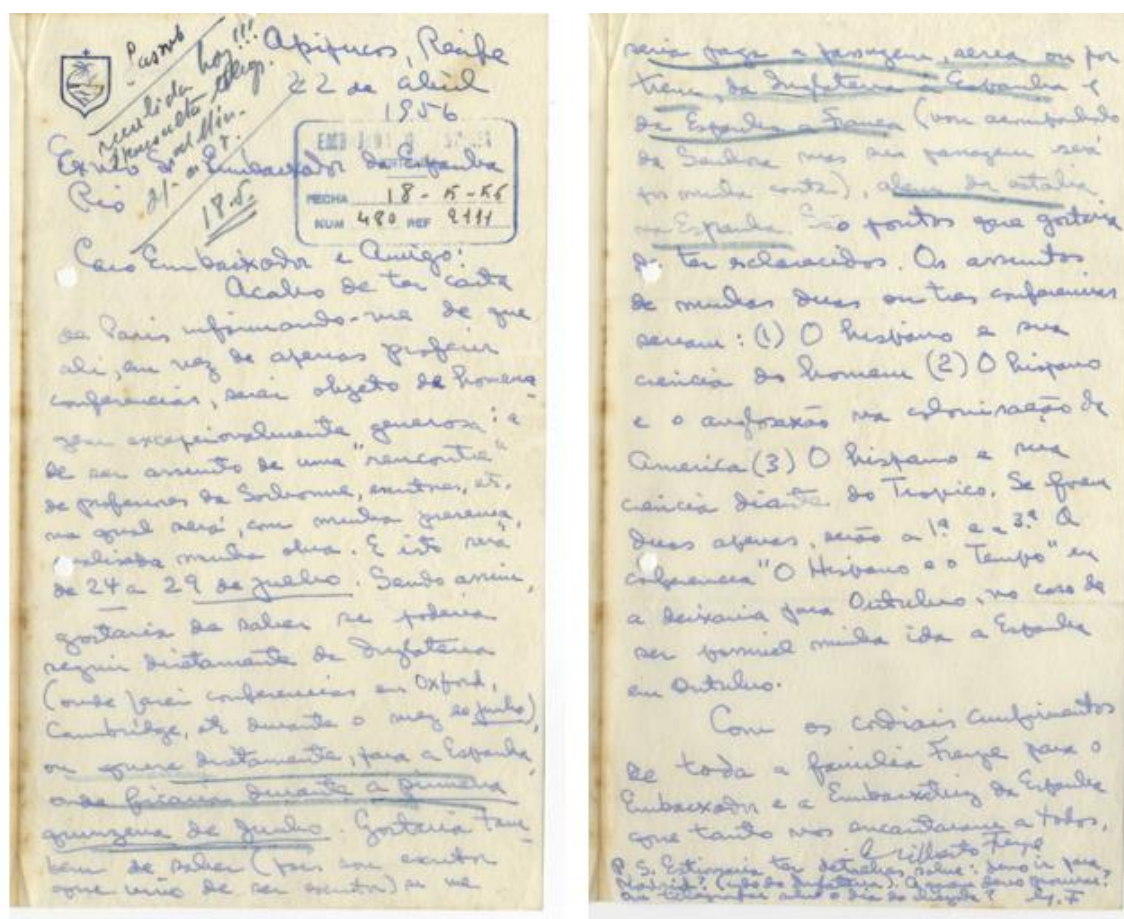 Apipucos, Recife
22 de abril
1956
hoy!!!
EMB
FECHA 18-5-56
NUM 480 REF 2111
18.5.
Exmo Sr Embaixador da Espanha
Rio
Caro Embaixador e Amigo:
Acabo de ter carta
de Paris informando-me de que
ali, em vez de apenas proferir
conferencias, serei objeto de homena-
gem excepcionalmente generosa: a
de ser assunto de uma "rencontre"
de professores da Sorbonne, escritores, etc.
na qual será, com minha presença,
analisada minha obra. E isto será
de 24 a 29 de julho. Sendo assim,
gostaria de saber se poderia
seguir diretamente da Inglaterra
(onde farei conferencias em Oxford,
Cambridge, etc durante o mez de junho),
ou quase diretamente, para a Espanha,
onde ficaria durante a primeira
quinzena de Junho. Gostaria tam-
bem de saber (pois sou escritor
que vive de ser escritor) se me
seria paga a passagem, aerea ou por
trem, da Inglaterra a Espanha e
da Espanha a França (vou acompanhado
da Senhora mas sua passagem será
por minha conta), alem da estadia
na Espanha. São pontos que gostaria
de ter esclarecidos. Os assuntos
de minhas duas ou tres conferencias
seriam: (1) O hispano e sua
ciencia do homem (2) O hispano
e o anglosaxão na colonisação da
America (3) O hispano e sua
ciencia diante do Tropico. Se forem
duas apenas, serão a 1ª e a 3ª. A
conferencia "O Hispano e o Tempo" eu
a deixaria para Outubro, no caso de
ser possivel minha ida a Espanha
em Outubro.
Com os cordiais cumprimentos
de toda a familia Freyre para o
Embaixador e a Embaixatriz da Espanha
que tanto nos encantaram a todos,
Gilberto Freyre
P. S. Estimaria ter detalhes sobre: devo ir para
Madrid? (indo da Inglaterra). A quem devo procurar?
Ou telegrafar sobre o dia da chegada? G. F.